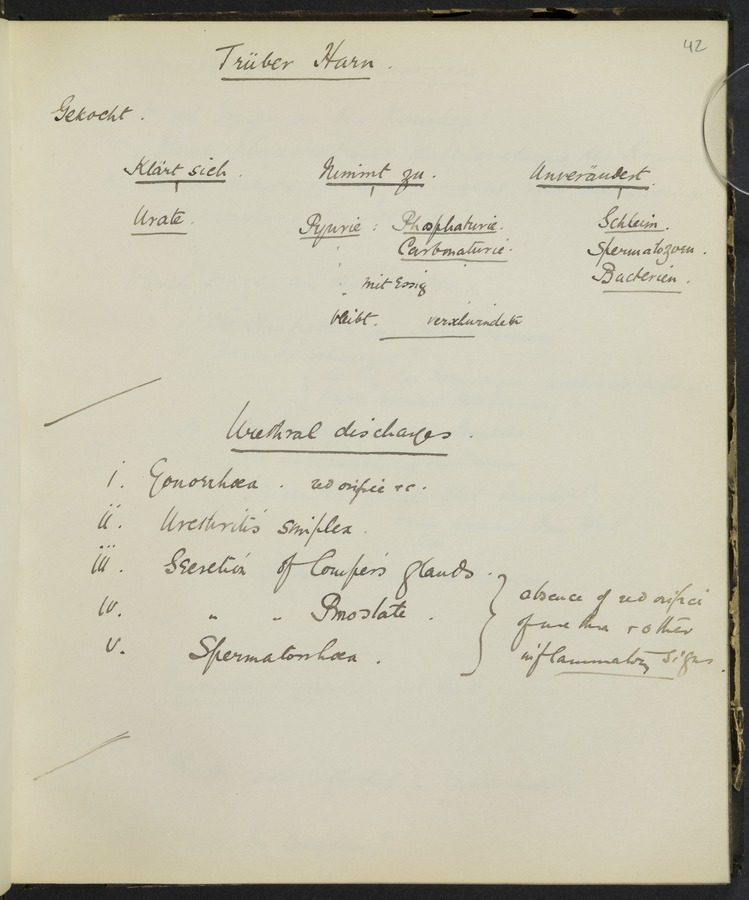 42
Trüber Harn.
Gekocht.
Klärt sich. Nimmt zu. Unverändert.
Urate. Pyurie : Phosphaturie. Schleim.
Carbonaturie. Spermatozoen.
mit Essig Bacterien.
bleibt. verschwindet
Urethral discharges.
i. Gonorrhœa. red orifice &c.
ii. Urethritis simplex.
iii. Secretion of Cowper's glands.
absence of red orifice
iv. " " Prostate.
of urethra & other
v. Spermatorrhœa.
inflammatory signs.